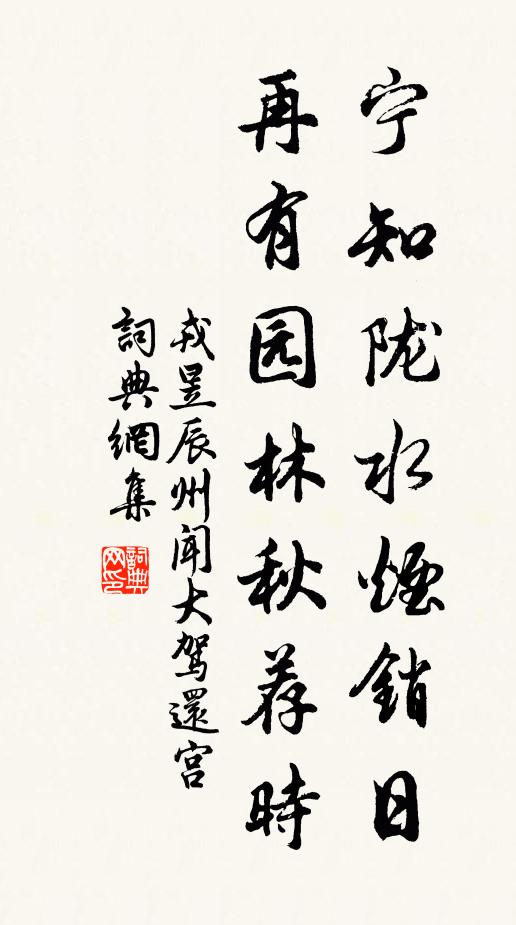 宁知陇水煙銷日
再有园林秋荐時
戎昱辰州闻大驾還宫
詞典網集
詞典网印